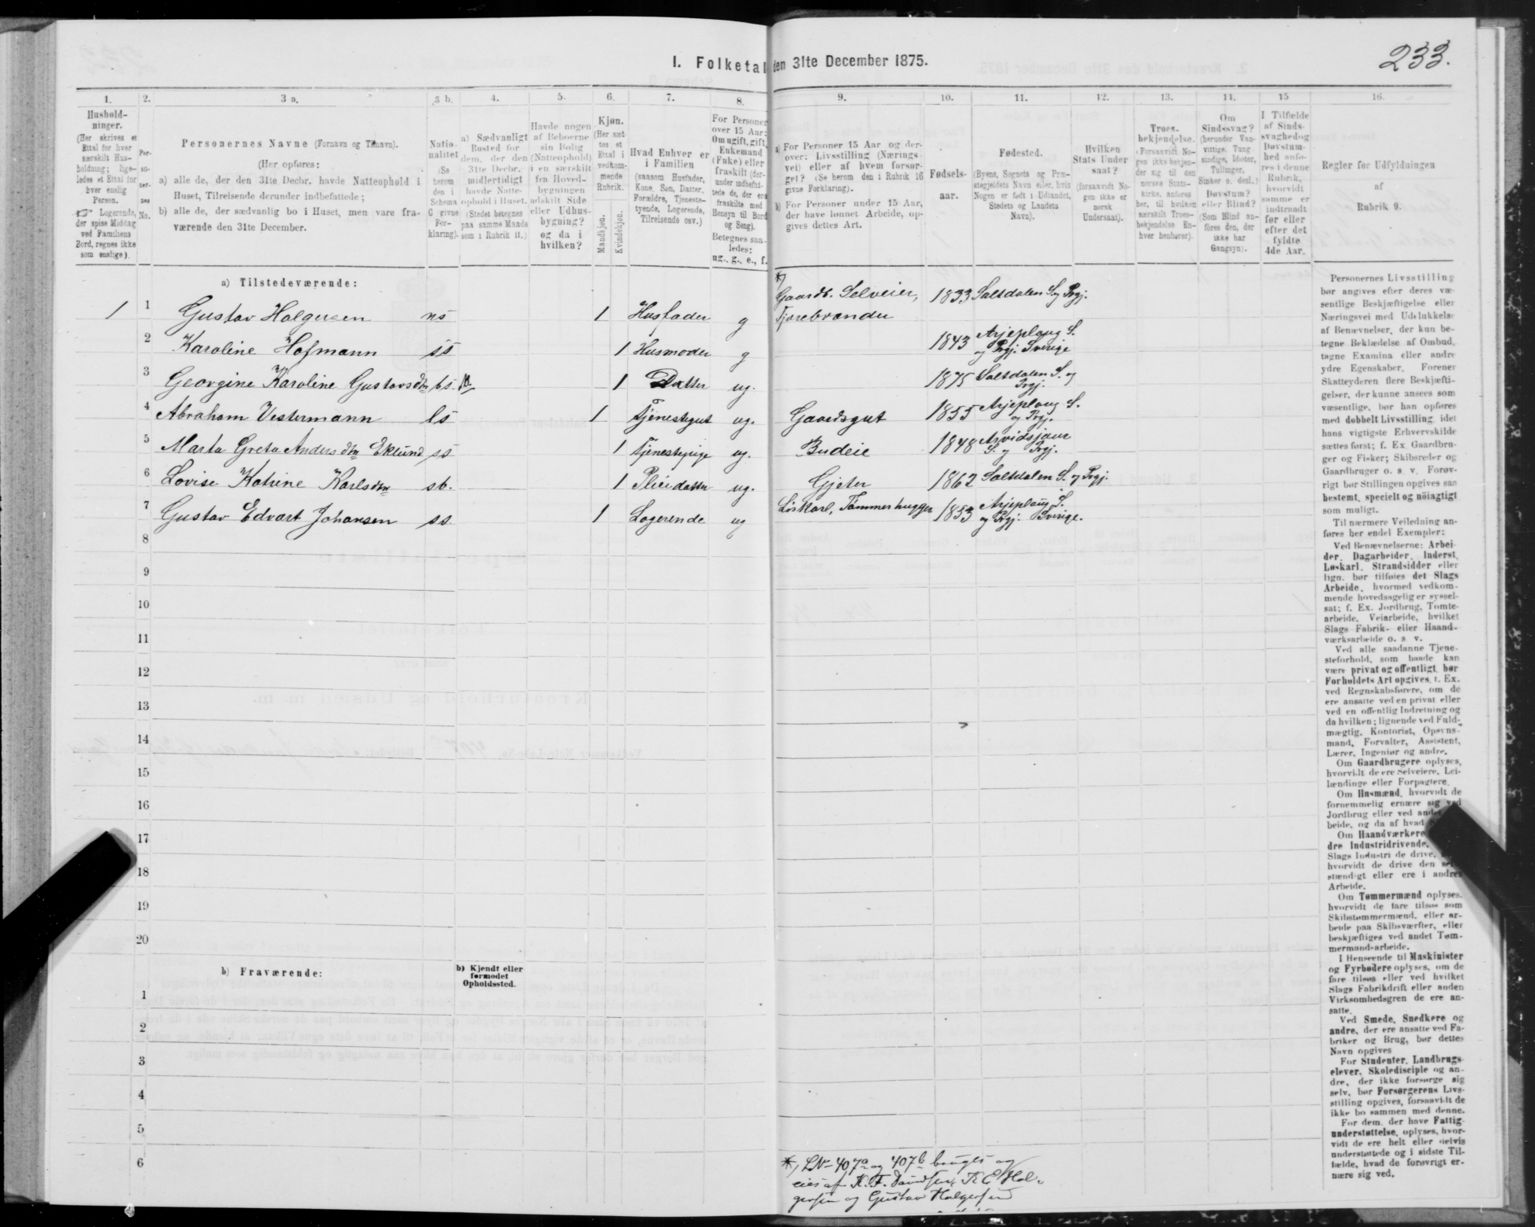 1. Folketal den 31te December 1875.
233.
1. 2. 3 a. 3 b. 4. 5. 6. 7. 8. 9. 10. 11. 12. 13. 14. 15 16.
Hushold-
ninger.
(Her skrives et
Ettal for hver
særskilt Hus-
holdning; lige-
ledes et Ettal for
hver enslig
Person.
Logerende,
der spise Middag
ved Familiens
Bord, regnes ikke
som enslige).
Per-
so-
ner-
nes
No.
Personernes Navne (Fornavn og Tilnavn).
(Her opføres:
a) alle de, der den 31te Decbr. havde Natteophold i
Huset, Tilreisende derunder indbefattede;
b) alle de, der sædvanlig bo i Huset, men vare fra-
værende den 31te December.
Natio-
nalitet
(Se
herom
den i
Schema
G givne
For-
klaring).
a) Sædvanligt
Bosted for
dem, der den
31te Decbr.
midlertidigt
havde Natte-
ophold i Huset.
(Stedet betegnes
paa samme Maade
som i Rubrik 11.)
Havde nogen
af Beboerne
sin Bolig
(Natteophold)
i en særskilt
fra Hoved-
bygningen
adskilt Side-
eller Udhus-
bygning?
og da i
hvilken?
Kjøn.
(Her sæt-
tes et
Ettal i
vedkom-
mende
Rubrik.
Mandkjøn.
Kvindekjøn.
Hvad Enhver er
i Familien
(saasom Husfader,
Kone, Søn, Datter,
Forældre, Tjeneste-
tyende, Logerende,
Tilreisende osv.)
For Personer
over 15 Aar:
Om ugift, gift,
Enkemand
(Enke) eller
fraskilt (der-
under indbefat-
tede de, der ere
fraskilte med
Hensyn til Bord
og Seng).
Betegnes saa-
ledes:
ug., g., e., f.
a) For Personer 15 Aar og der-
over: Livsstilling (Nærings-
vei) eller af hvem forsør-
get? (Se herom den i Rubrik 16
givne Forklaring).
b) For Personer under 15 Aar,
der have lønnet Arbeide, op-
gives dettes Art.
Fødsels-
aar.
Fødested.
(Byens, Sognets og Præ-
stegjeldets Navn eller, hvis
Nogen er født i Udlandet,
Stedets og Landets
Navn).
Hvilken
Stats Under-
saat?
(forsaavidt No-
gen ikke er
norsk
Undersaat).
Troes-
bekjendelse.
(Forsaavidt No-
gen ikke bekjen-
der sig til den
norske Stats-
kirke, anføres
her, til hvilken
særskilt Troes-
bekjendelse En-
hver henhører).
Om
Sindssvag?
(herunder Van-
vittige, Tung-
sindige, Idioter,
Tullinger,
Sinker o. desl.)
Døvstum?
eller Blind?
(Som Blind an-
føres den, der
ikke har
Gangsyn).
I Tilfælde
af Sinds-
svaghed og
Døvstum-
hed anfø-
res i denne
Rubrik,
hvorvidt
samme er
indtraadt
før eller
efter det
fyldte
4de Aar.
Regler for Udfyldningen
af
Rubrik 9.
a) Tilstedeværende:
*)
1 1 Gustav Holgersen ns 1 Husfader g Gaardb. Selveier, Tjærebrænder 1833 Saltdalen S. og Prgj.
2 Karoline Hofmann ss 1 Husmoder g 1843 Arjeploug S. og Prgj. Sverige
3 Georgine Karoline Gustavsdtr bs 1 Datter ug. 1875 Saltdalen S. og Prgj.
4 Abraham Vestermann ls 1 Tjenestegut ug. Gaardsgut 1855 Arjeploug S. og Prgj.
5 Marta Greta Andersdtr Eklund ss 1 Tjenestepige ug. Budeie 1848 Arvidsjaur S. og Prgj.
6 Lovise Katrine Karlsdtr sb. 1 Pleiedatter ug. Gjeter 1862 Saltdalen S. og Prgj.
7 Gustav Edvart Johansen ss 1 Logerende ug Löskarl, Tømmerhugger 1853 Arjeploug S. og Prgj. Sverige.
8
9
10
11
12
13
14
15
16
17
18
19
20
b) Fraværende:
b) Kjendt eller
formodet
Opholdssted.
1
2
3
4
5
6
*) LNo 407a og 407b bruges og
eies af
Holgersen og Gustav Holgersen
Personernes Livsstilling
bør angives efter deres væ-
sentlige Beskjæftigelse eller
Næringsvei med Udelukkelse
af Benævnelser, der kun be-
tegne Beklædelse af Ombud,
tagne Examina eller andre
ydre Egenskaber. Forener
Skatteyderen flere Beskjæfti-
gelser, der kunne ansees som
væsentlige, bør han opføres
med dobbelt Livsstilling, idet
hans vigtigste Erhvervskilde
sættes først; f. Ex Gaardbru-
ger og Fisker; Skibsreder og
Gaardbruger o. s. v. Forøv-
rigt bør Stillingen opgives saa
bestemt, specielt og nøiagtigt
som muligt.
Til nærmere Veiledning an-
føres her endel Exempler:
Ved Benævnelserne: Arbei-
der, Dagarbeider, Inderst,
Løskarl, Strandsidder eller
lign. bør tilføies det Slags
Arbeide, hvormed vedkom-
mende hovedsagelig er syssel-
sat; f. Ex. Jordbrug, Tomte-
arbeide, Veiarbeide, hvilket
Slags Fabrik- eller Haand-
værksarbeide o. s. v.
Ved alle saadanne Tjene-
steforhold, som baade kan
være privat og offentligt, bør
Forholdets Art opgives, t. Ex.
ved Regnskabsførere, om de
ere ansatte ved en privat eller
ved en offentlig Indretning og
da hvilken; lignende ved Fuld-
mægtig, Kontorist, Opsyns-
mand, Forvalter, Assistent,
Lærer, Ingeniør og andre.
Om Gaardbrugere oplyses,
hvorvidt de ere Selveiere, Lei-
lændinge eller Forpagtere.
Om Husmænd, hvorvidt de
fornemmelig ernære sig ved
Jordbrug eller ved
beide, og da af hvad
Om Haandværkere
dre Industridrivende,
Slags Industri de drive,
hvorvidt de drive den
stændigt eller ere i andres
Arbeide.
Om Tømmermænd oplyses,
hvorvidt de fare tilsøs som
Skibstømmermænd, eller ar-
beide paa Skibsværfter, eller
beskjæftiges ved andet Tøm-
mermandsarbeide.
I Henseende til Maskinister
og Fyrbødere oplyses, om de
fare tilsøs eller ved hvilket
Slags Fabrikdrift eller anden
Virksomhedsgren de ere an-
satte.
Ved Smede, Snedkere og
andre, der ere ansatte ved Fa-
briker og Brug, bør dettes
Navn opgives
For Studenter, Landbrugs-
elever, Skoledisciple og an-
dre, der ikke forsørge sig
selv, bør Forsørgerens Livs-
stilling opgives, forsaavidt de
ikke bo sammen med denne.
For dem, der have Fattig-
understøttelse, oplyses, hvor-
vidt de ere helt eller delvis
understøttede og i sidste Til-
fælde, hvad de forøvrigt er-
nære sig ved.